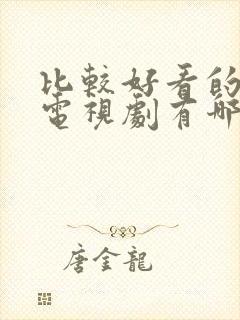 比較好看的
電視劇有哪
唐金龍